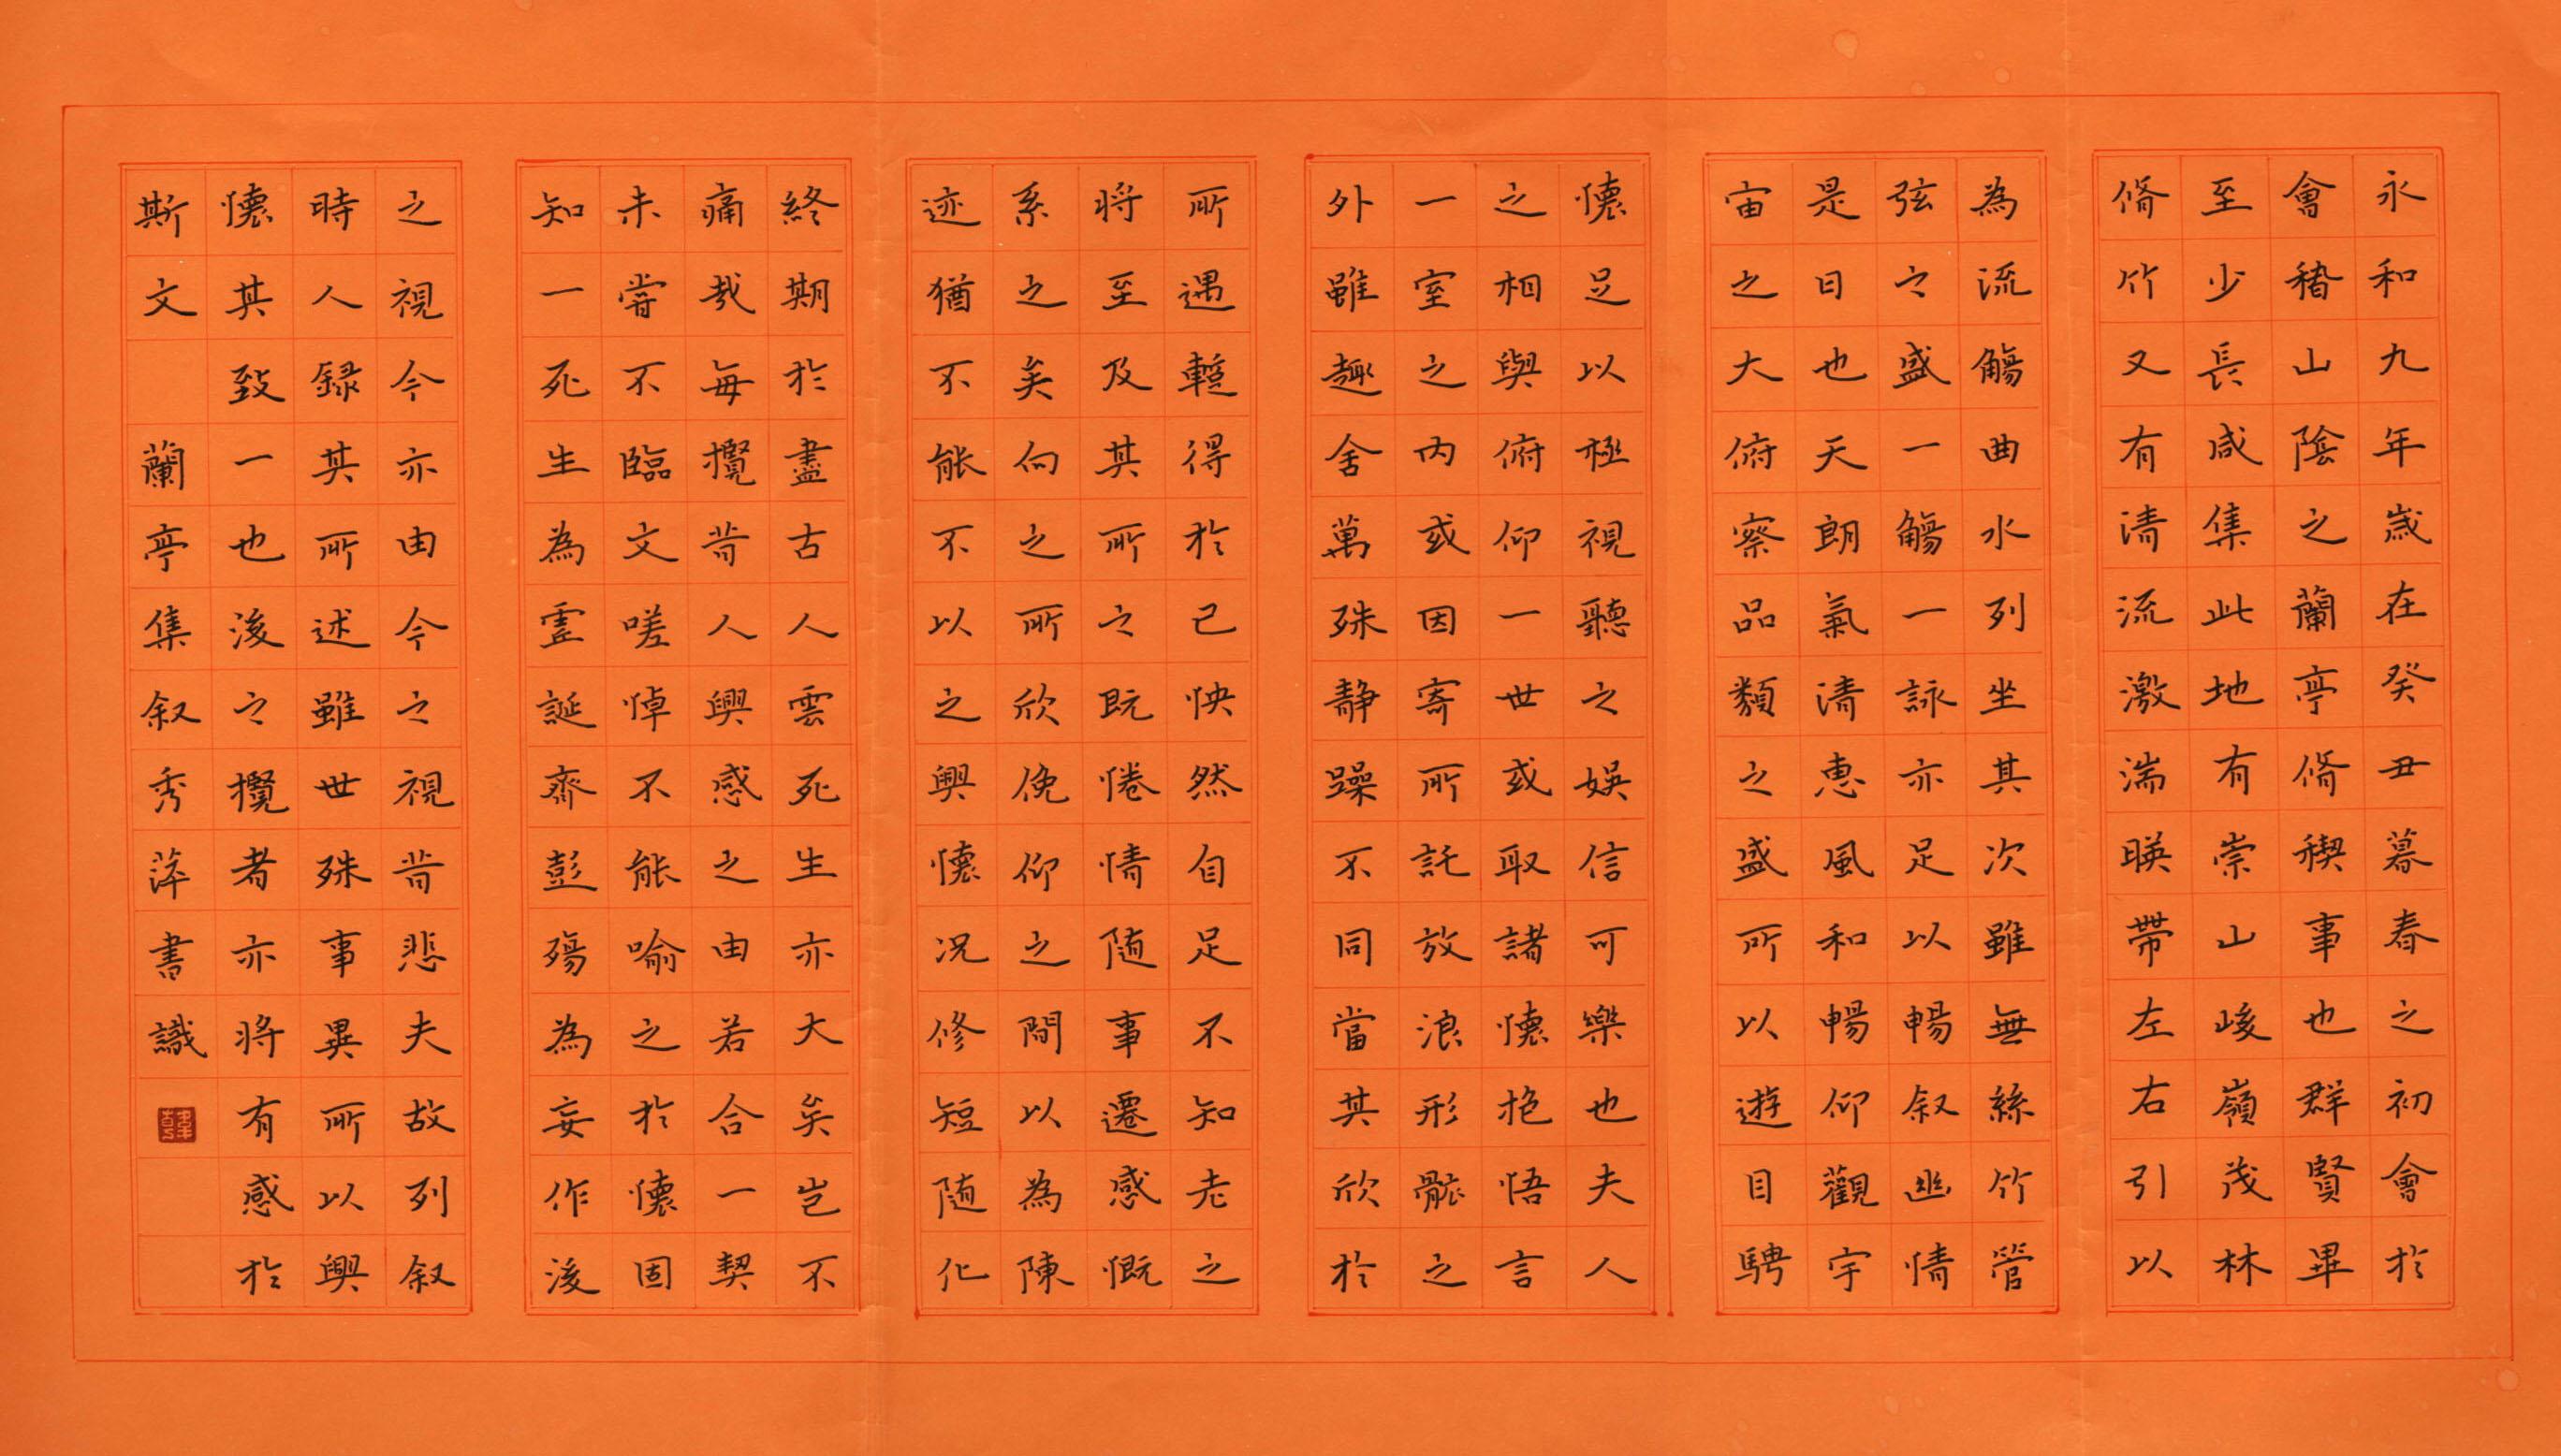 永和九年歲在癸丑暮春之初會於
會稽山陰之蘭亭脩稧事也群賢畢
至少長咸集此地有崇山峻嶺茂林
脩竹又有清流激湍暎帶左右引以
為流觴曲水列坐其次雖無絲竹管
弦之盛一觴一詠亦足以暢叙幽情
是日也天朗氣清惠風和暢仰觀宇
宙之大俯察品類之盛所以遊目騁
懷足以極視聽之娛信可樂也夫人
之相與俯仰一世或取諸懷抱悟言
一室之內或因寄所託放浪形骸之
外雖趣舍萬殊静躁不同當其欣於
所遇蹔得於己怏然自足不知老之
將至及其所之既惓情隨事遷感慨
系之矣向之所欣俛仰之間以為陳
迹猶不能不以之興懷况修短隨化
終期於盡古人雲死生亦大矣豈不
痛哉每攬昔人興感之由若合一契
未嘗不臨文嗟悼不能喻之於懷固
知一死生為虛誕齊彭殤為妄作後
之視今亦由今之視昔悲夫故列叙
時人錄其所述雖世殊事異所以興
懷其致一也後之攬者亦將有感於
斯文 蘭亭集叙秀萍書識